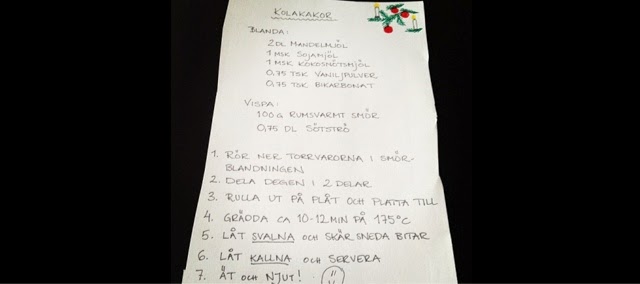 KOLAKAKOR
BLANDA:
2 DL MANDELMJÖL
1 MSK SOJAMJÖL
1 MSK KOKOSNÖTSMJÖL
0,75 TSK VANILJPULVER
0,75 TSK BIKARBONAT
VISPA:
100 G RUMSVARMT SMÖR
0,75 DL SÖTSTRÖ
1. RÖR NER TORRVARORNA I SMÖR-
BLANDNINGEN
2. DELA DEGEN I 2 DELAR
3. RULLA UT PÅ PLÅT OCH PLATTA TILL
4. GRÄDDA CA 10-12 MIN PÅ 175°C
5. LÅT SVALNA OCH SKÄR SNEDA BITAR
6. LÅT KALLNA OCH SERVERA
7. ÄT OCH NJUT!